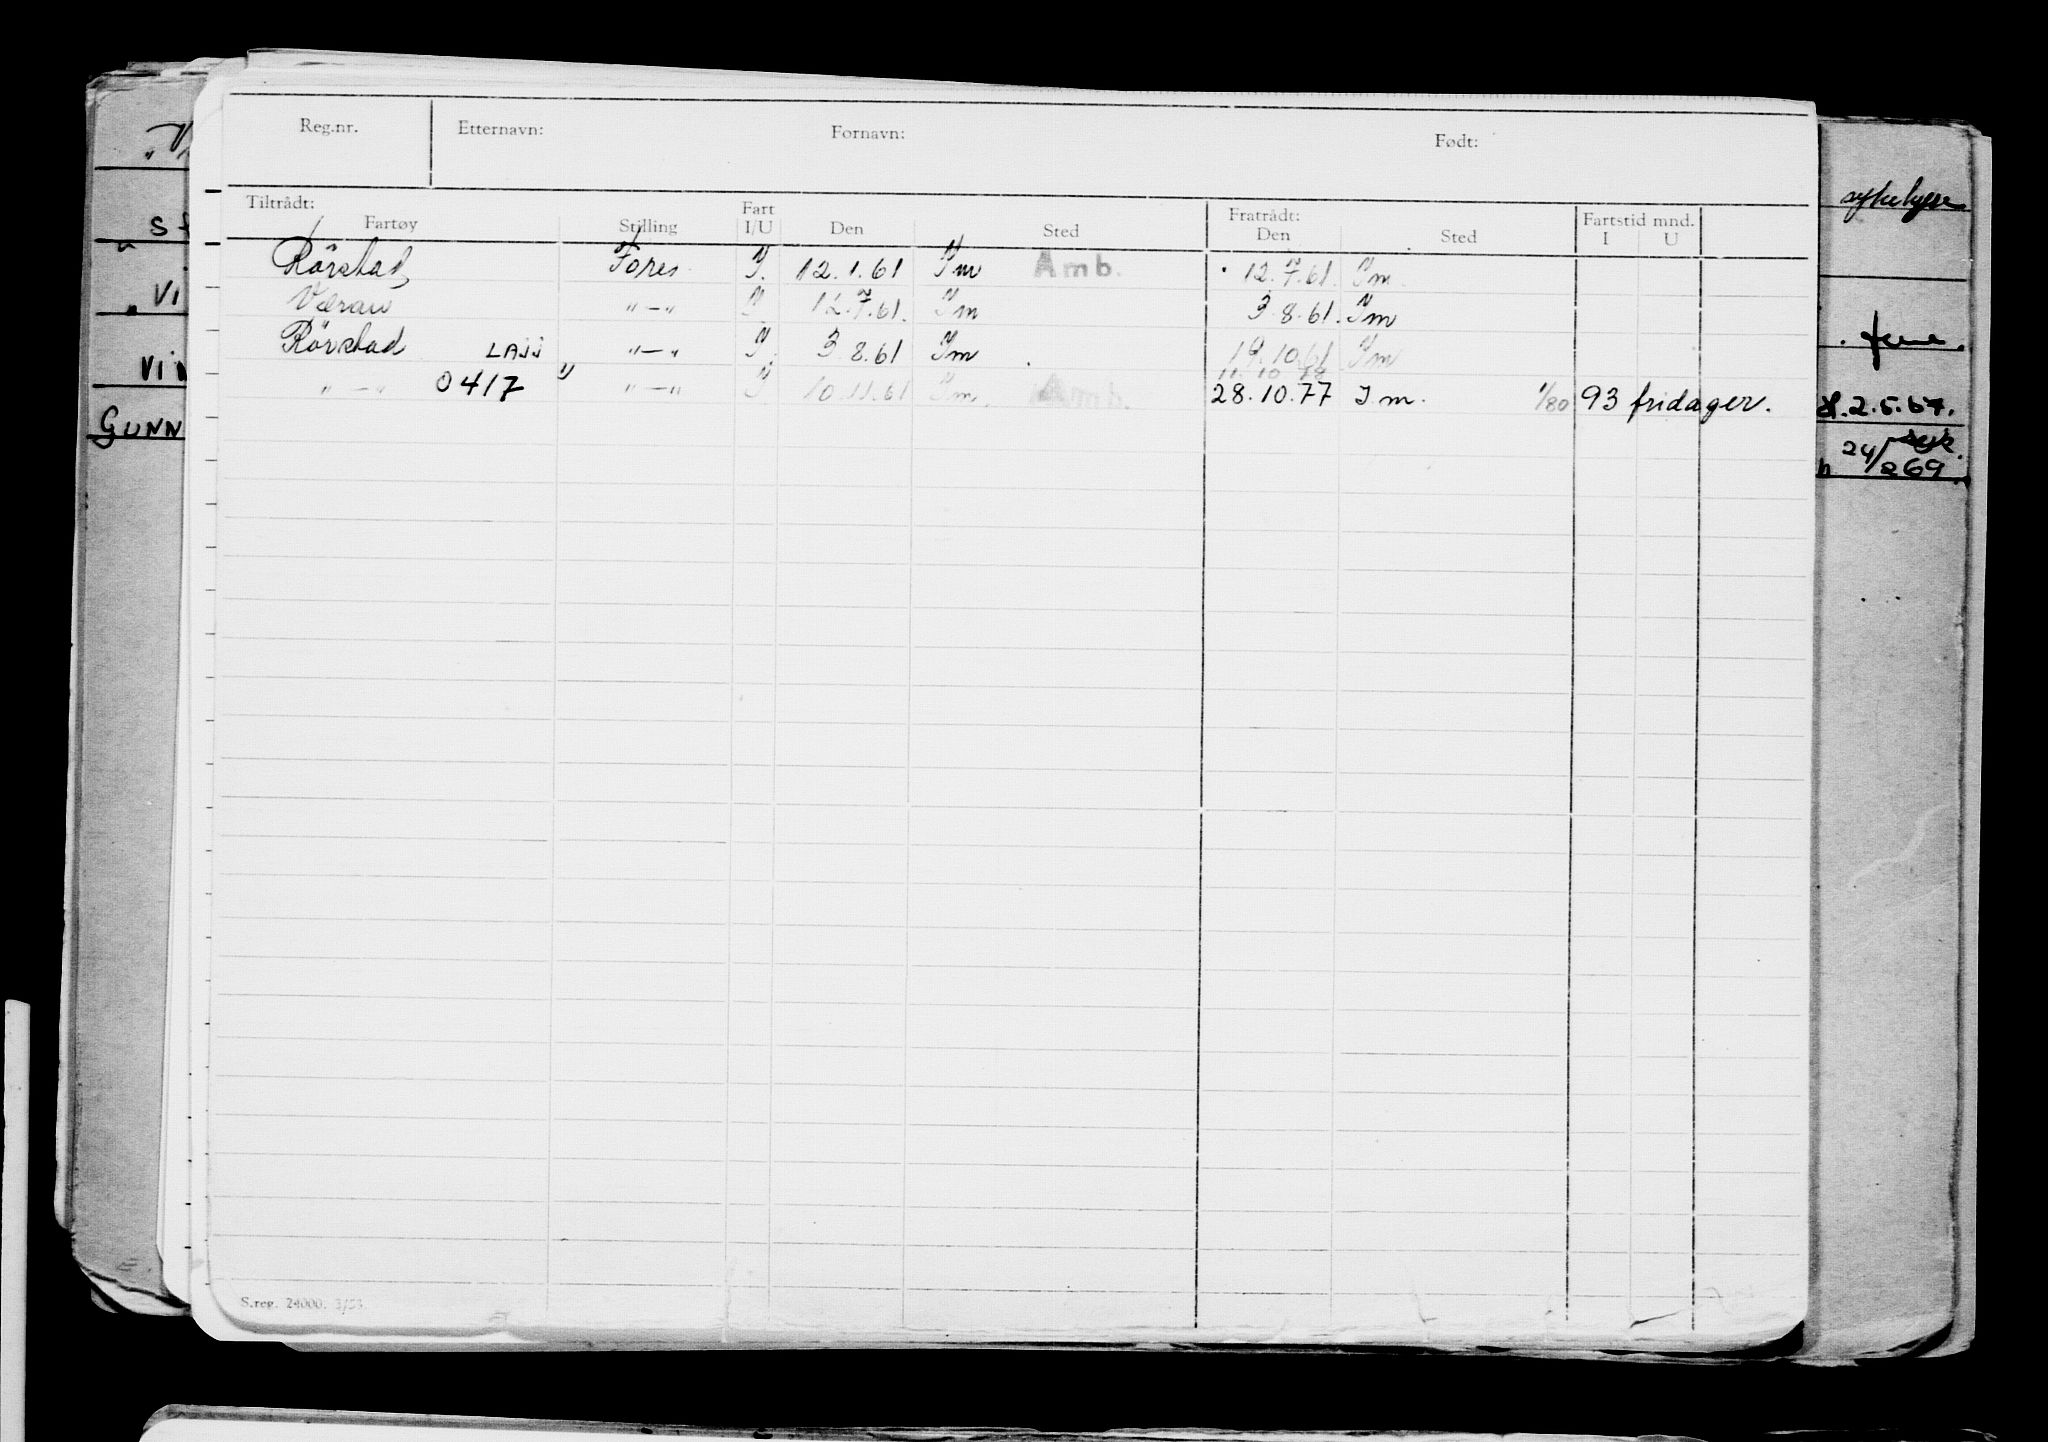 Reg.nr. Etternavn: Fornavn: Født:
Tiltrådt: Fratrådt:
Fartøy Stilling Fart I/U Den Sted Den Sted Fartstid mnd. I U
Rörstad Fores. I. 12.1.61 Im Amb. 12.7.61. Im.
Væran "—" I. 12.7.61. Im 3.8.61. Im
Rörstad LAJJ "—" I. 3.8.61 Im 19.10.61 Im
"—" 0417 " "—" I 10.11.61 Im. Amb. 28.10.77 I.m. 1/80 93 fridager.
S.reg. 24000. 3/53.
GUNN
2.5.67.
24/869.